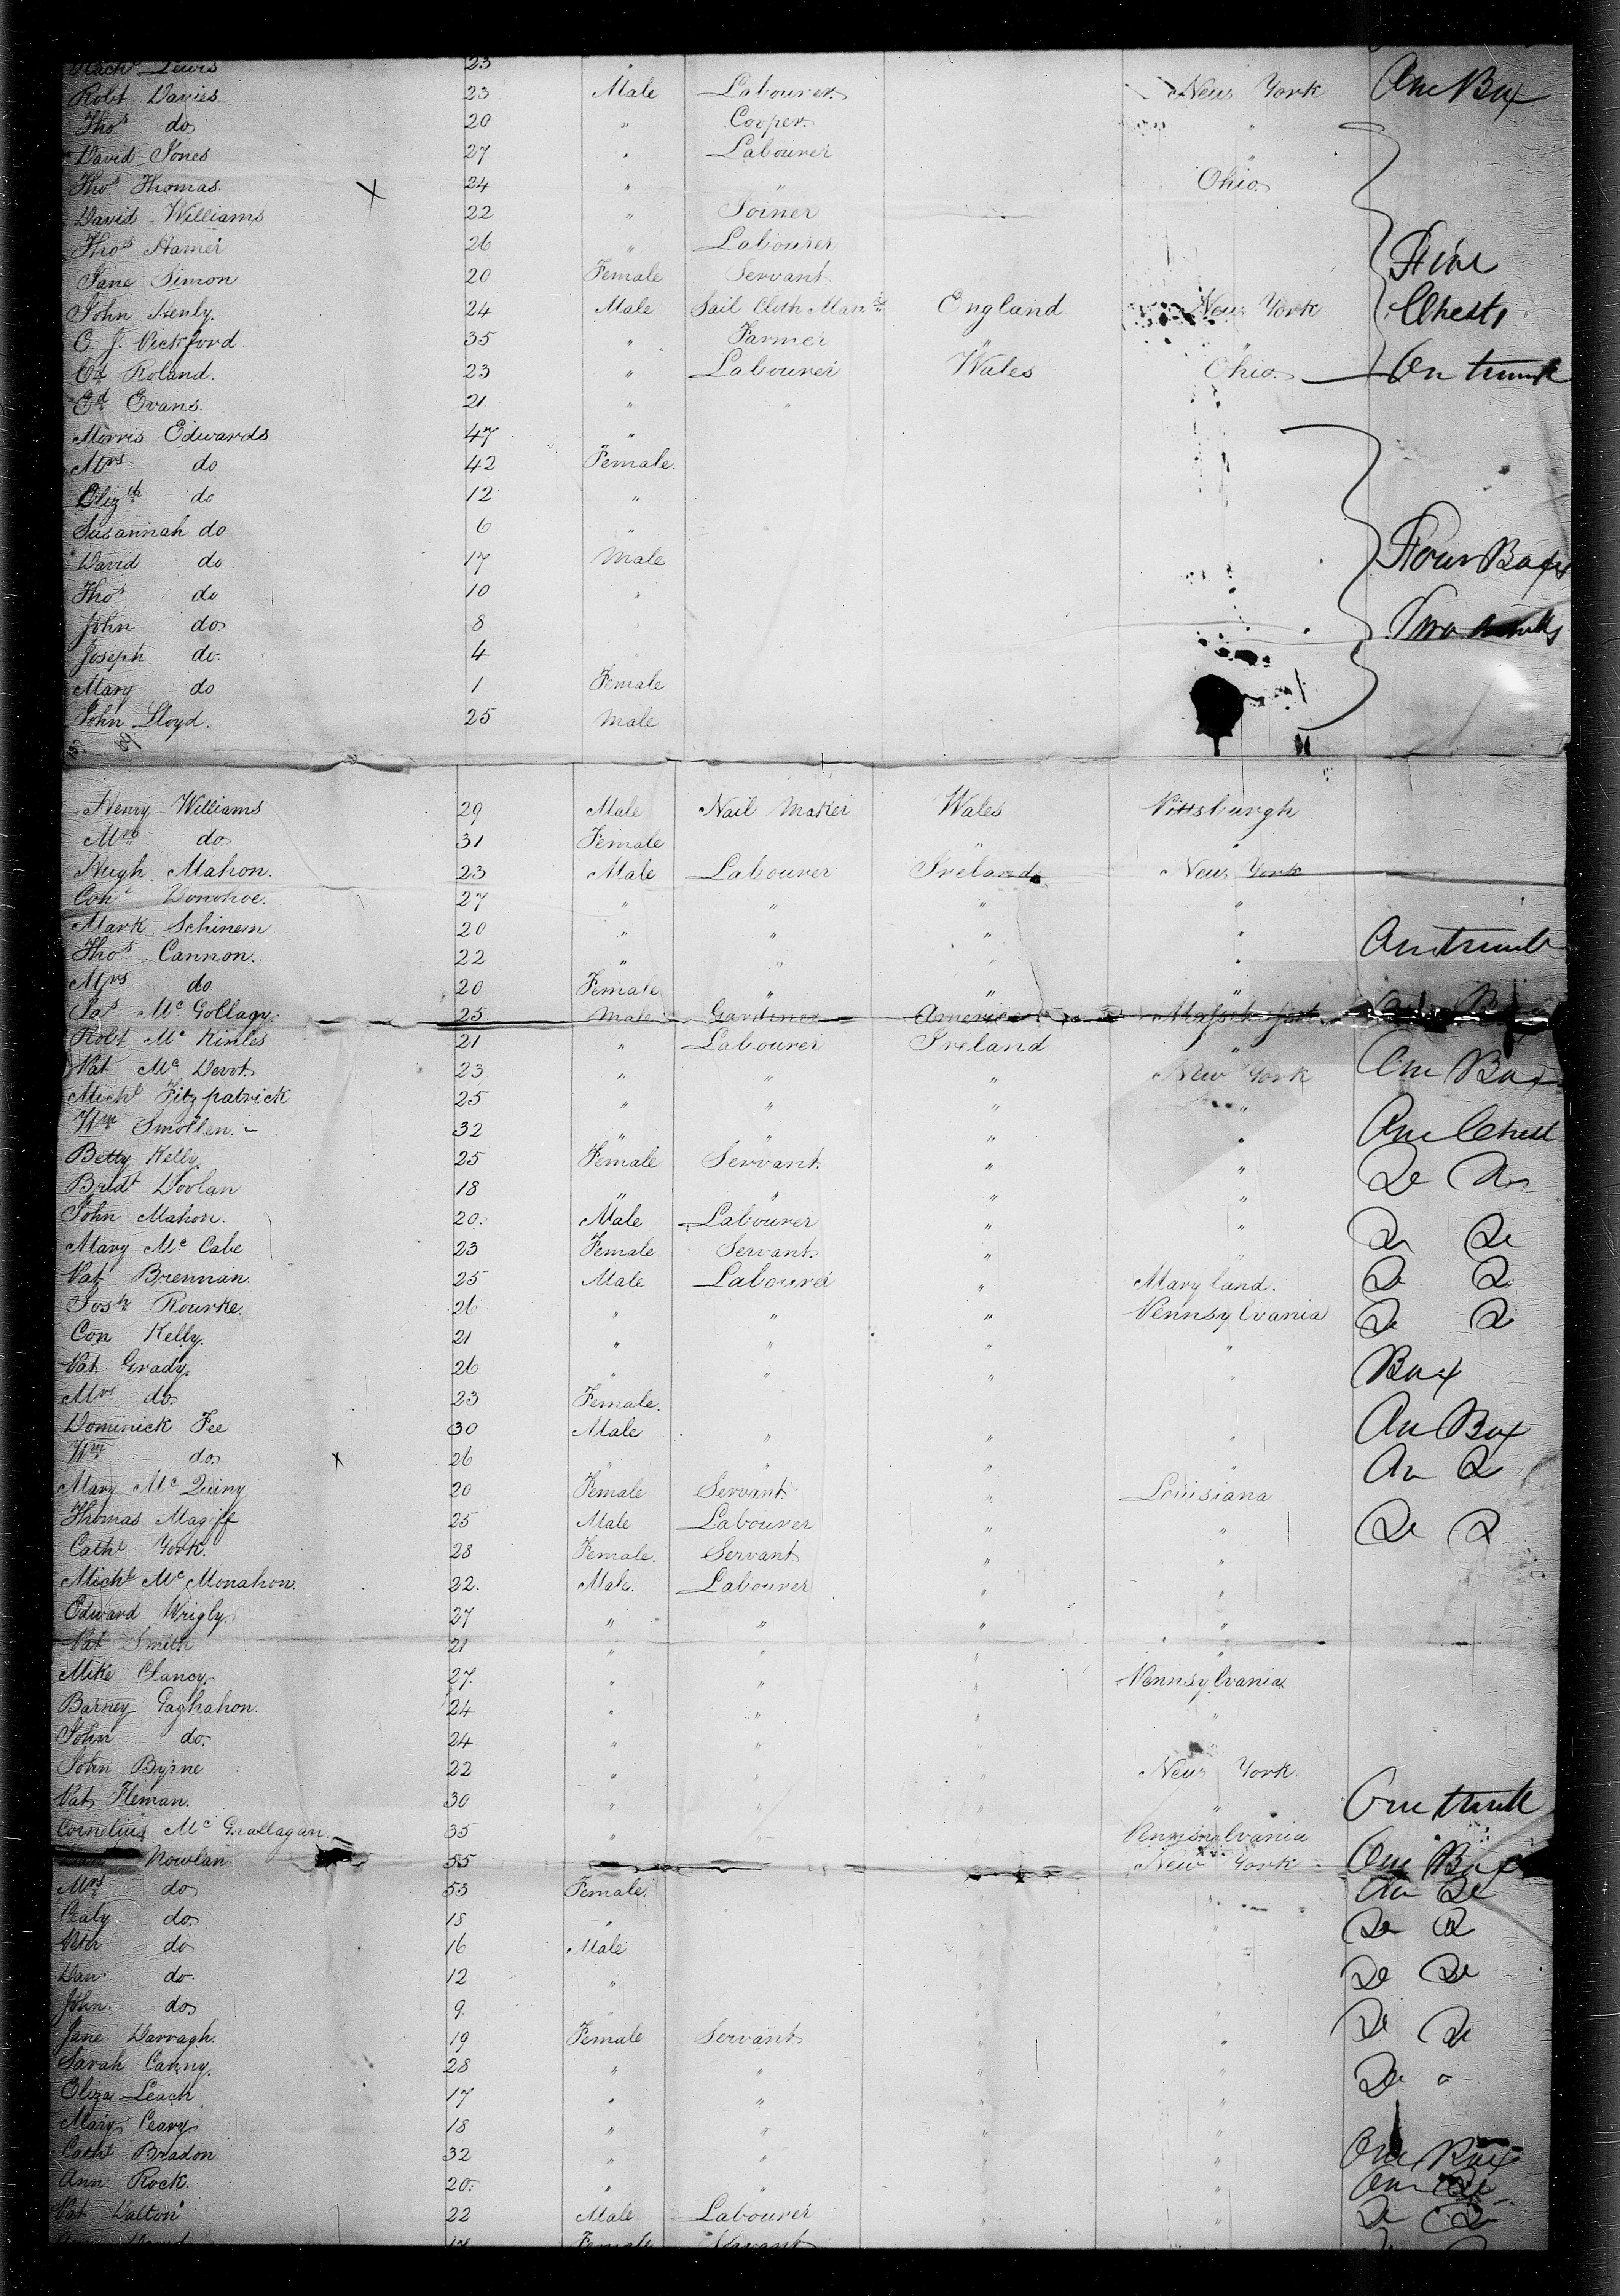 Rach.l Lewis 23 "
Robt Davies 23 Male Labourer New York One Box
Thos do 20 " Cooper "
David Jones 27 " Labourer "
Thos Thomas 24 " " Ohio
David Williams 22 " Joiner
Thos Hamer 26 " Labourer Five
Jane Simon 20 Female Servant
John Henly 24 Male Sail Cloth Man England New York Chests
C. J. Pickford 35 " Farmer " "
Ed Roland 23 " Labourer Wales Ohio One trunk
Ed Evans 21 " "
Morris Edwards 47 "
Mrs do 42 Female
Elizth do 12 "
Susannah do 6 "
David do 17 Male Four Boxes
Thos do 10 "
John do 8 Two trunks
Joseph do 4
Mary do 1 Female
John Lloyd 25 Male
Henry Williams 29 Male Nail Maker Wales Pittsburgh
Mrs do 31 Female " "
Hugh Mahon 23 Male Labourer Ireland New York
Con Donohoe 27 " " " "
Mark Schinem 20 " " " "
Thos Cannon 22 " " " " One trunk
Mrs do 20 Female " " "
Jas Mc Gollagy 25 Male Gardiner America
Robt Mc Kinles 21 " Labourer Ireland "
Pat Mc Dervt 23 " " " New York One Box
Michl Fitzpatrick 25 " " " "
Wm Smollen 32 " " " " One Chest
Betty Kelly 25 Female Servant " " Do Do
Bridt Doolan 18 " " " "
John Mahon 20 Male Labourer " " Do Do
Mary Mc Cabe 23 Female Servant " "
Pat Brennan 25 Male Labourer " Maryland Do Do
Josh Rourke 26 " " " Pennsylvania Do Do
Con Kelly 21 " " " "
Pat Grady 26 " " " " Box
Mrs do 23 Female
Dominick Fee 30 Male " " " One Box
Wm do 26 " " " " One Do
Mary Mc Quiny 20 Female Servant " Louisiana
Thomas Magiff 25 Male Labourer " " Do Do
Cathe York 28 Female Servant " "
Michl Mc Monahon 22 Male Labourer " "
Edward Wrigly 27 " " " "
Pat Smith 21 " " " "
Mike Clancy 27 " " " Pennsylvania
Barney Gaghahon 24 " " " "
John do 24 " " "
John Byrne 22 " " " New York
Pat Fleman 30 " " " " One trunk
Cornelius Mc Grallagan 35 " " Pennsylvania
Nowlan 55 New York One Box
Mrs do 53 Female " One Do
Caty do 18 " " " Do Do
Peter do 16 Male " "
Dan do 12 " " " Do Do
John do 9 " " "
Jane Darragh 19 Female Servant " " Do Do
Sarah Canny 28 " " " " Do "
Eliza Leach 17 " " " "
Mary Ceary 18 " " " "
Cathe Bradon 32 " " " " One Box
Ann Rock 20 " " " " One Do
Pat Dalton 22 Male Labourer " " Do Do
Female Servant